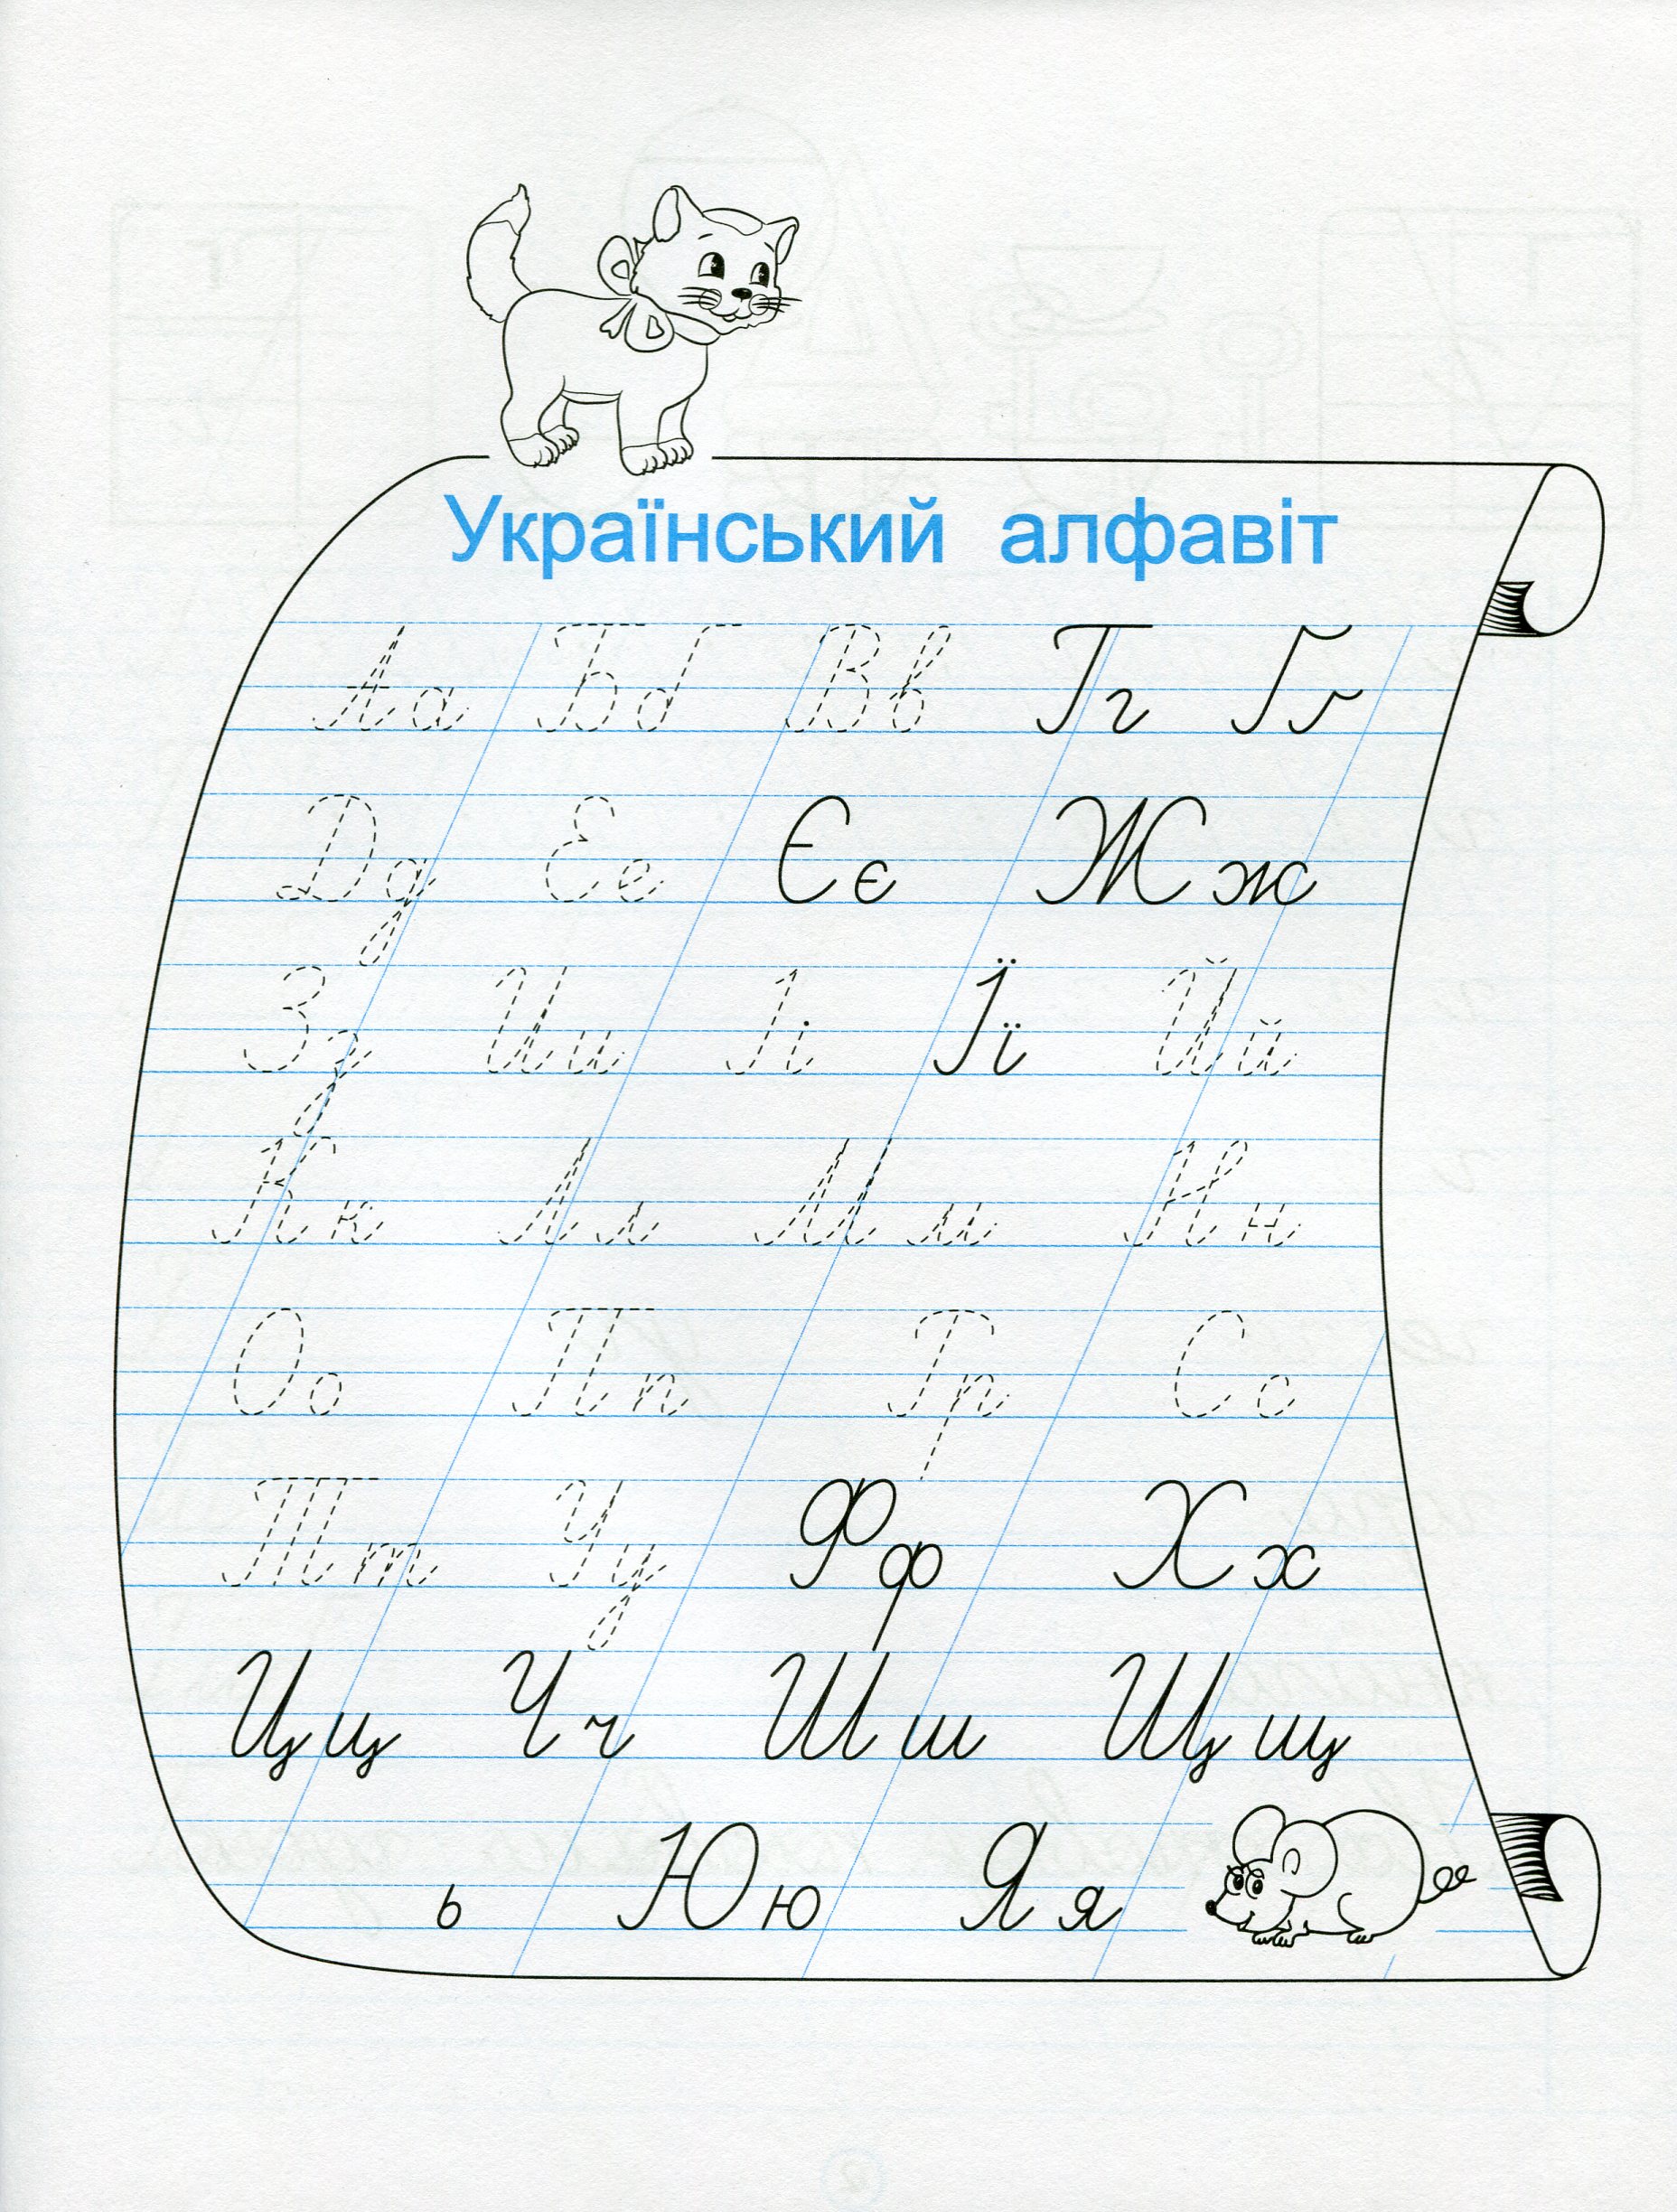 Український алфавіт
Аа Бб Вв Гг Ґґ
Дд Ее Єє Жж
Зз Ии Іі Її Йй
Кк Лл Мм Нн
Оо Пп Рр Сс
Тт Уу Фф Хх
Цц Чч Шш Щщ
ь Юю Яя